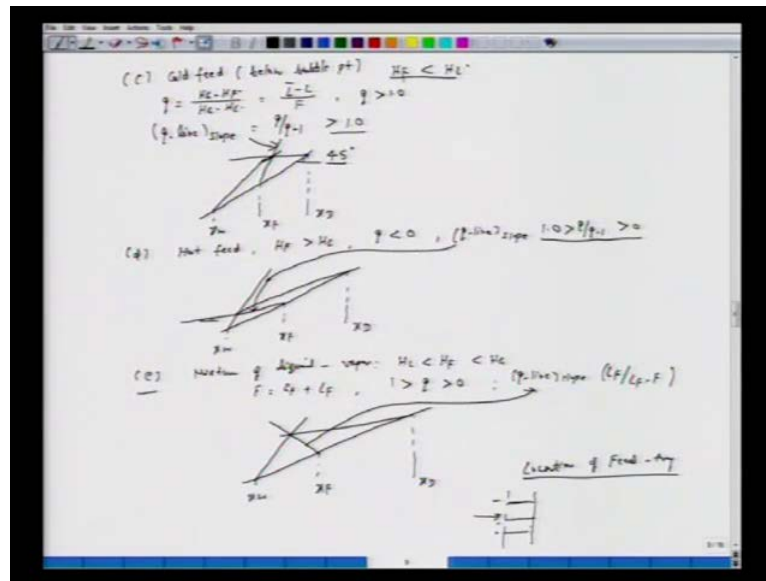 (c) Cold feed (below bubble pt) HF < HL.
q = HG-HF / HG-HL = L̄-L / F , q > 1.0
(q-line) slope = q/q-1 > 1.0
45°
xw xF xD
(d) Hot feed, HF > HG , q < 0 , (q-line) slope 1.0 > q/q-1 > 0
xw xF xD
(e) Mixture of liquid - vapor: HL < HF < HG
F = LF + , 1 > q > 0 : (q-line) slope (LF/LF-F)
xw xF xD
Location of Feed-tray